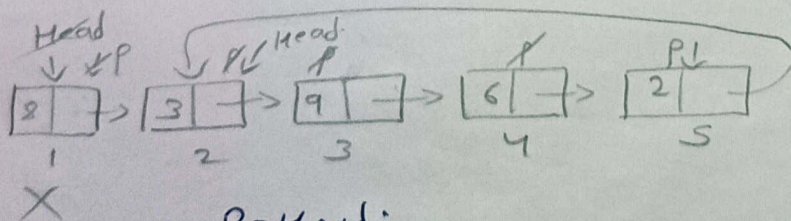 Head
P P Head P P P
8 3 9 6 2
1 2 3 4 5
X